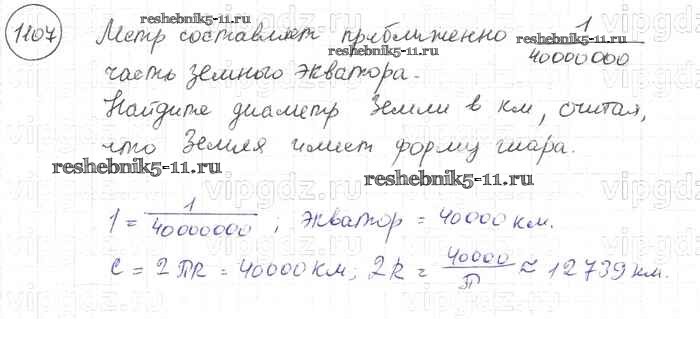 1107 Метр составляет приближенно 1/40000000
часть земного экватора.
Найдите диаметр Земли в км, считая,
что Земля имеет форму шара.
1 = 1/40000000 ; экватор = 40000 км.
C = 2πR = 40000 км; 2R = 40000/π ≈ 12739 км.
reshebnik5-11.ru
reshebnik5-11.ru
reshebnik5-11.ru
reshebnik5-11.ru
reshebnik5-11.ru
vipgdz.ru
vipgdz.ru
vipgdz.ru